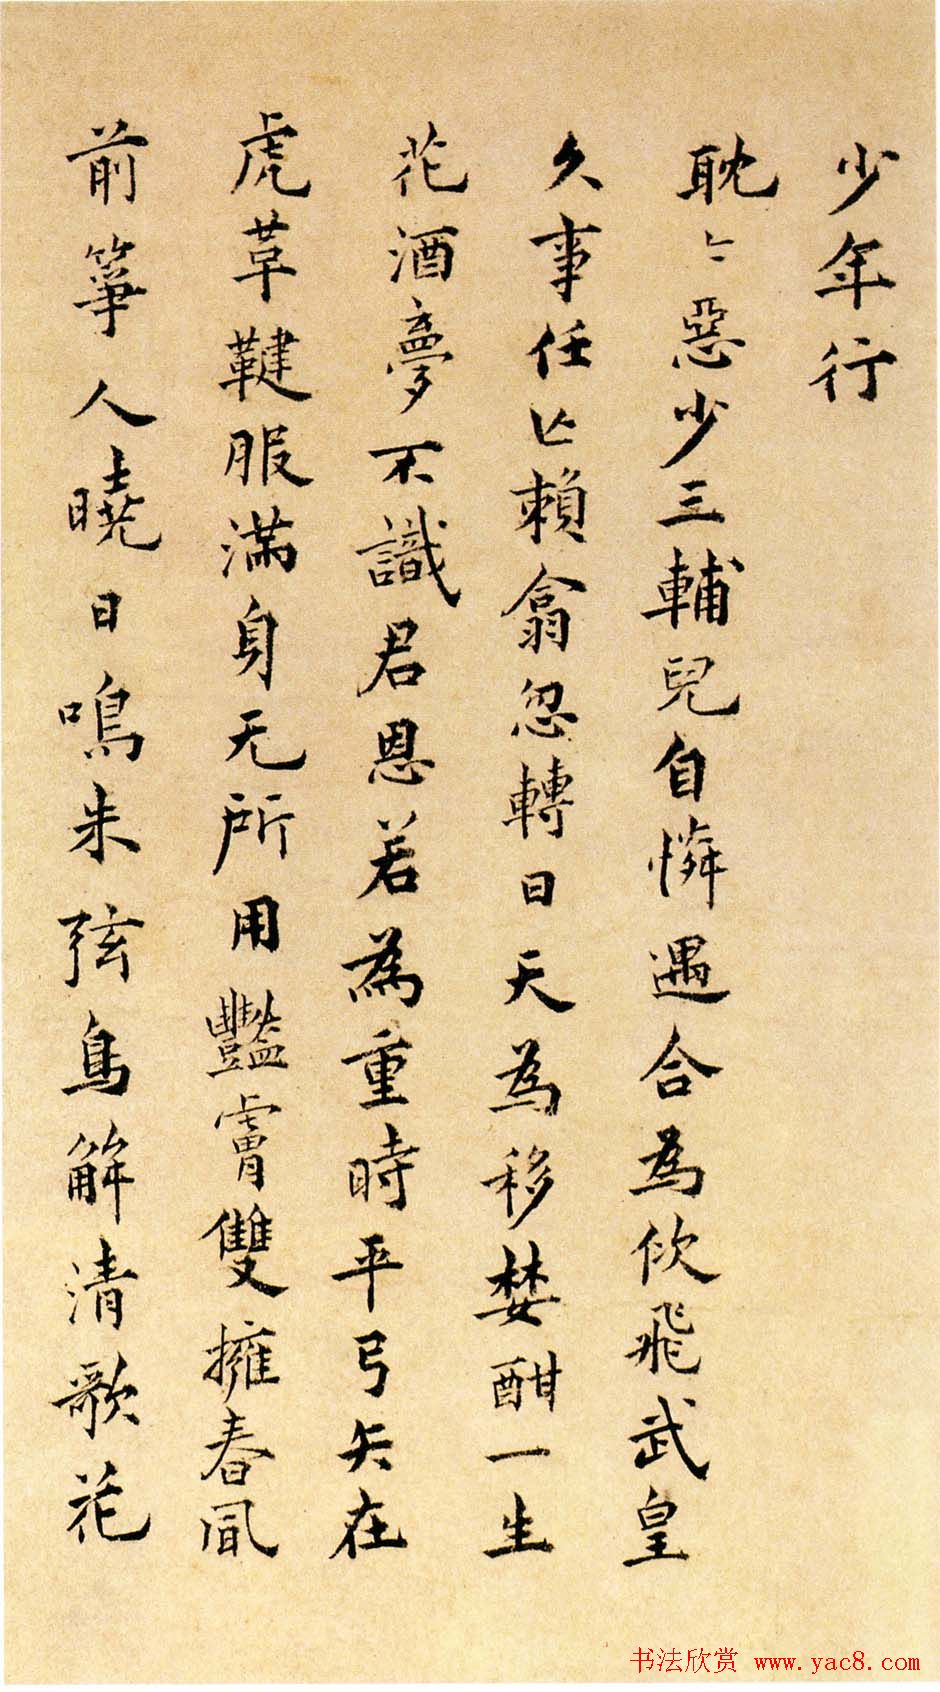 少年行
耽〻惡少三輔兒自憐遇合為佽飛武皇
久事任亡賴翕忽轉日天為移婪酣一生
花酒夢不識君恩若為重時平弓矢在
虎革鞬服滿身无所用豔膚雙擁春風
前箏人曉日鳴朱弦鳥解清歌花
书法欣赏 www.yac8.com